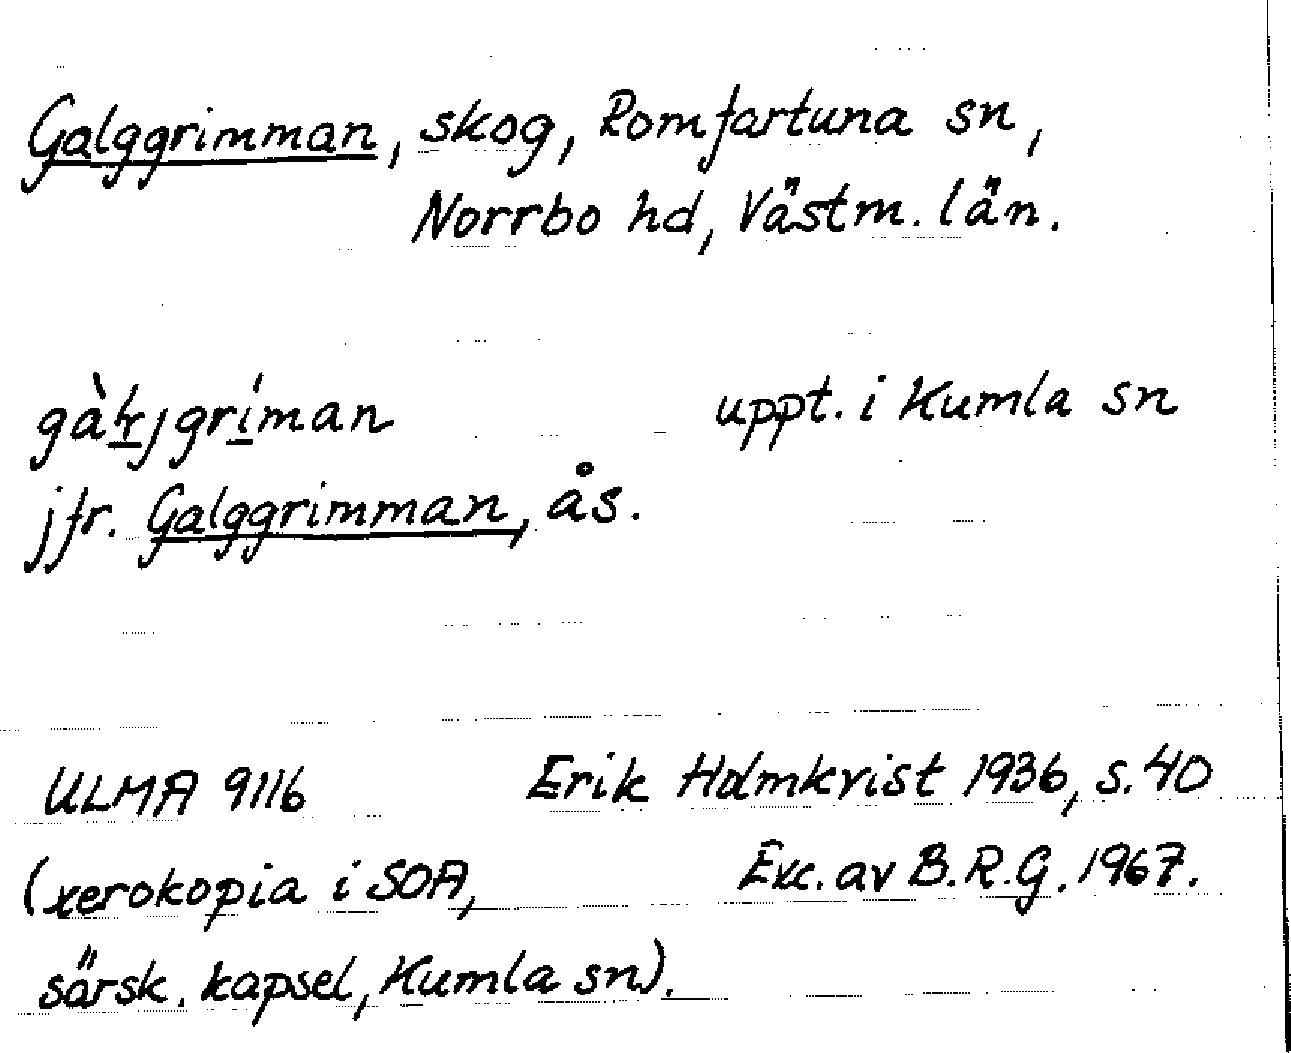 Galggrimman, skog, Romfartuna sn,
Norrbo hd, Västm. län.
uppt. i Kumla sn
jfr. Galggrimman, ås.
ULMA 9116 Erik Holmkvist 1936, s. 40
(xerokopia i SOA, Exc. av B.R.G. 1967.
särsk. kapsel, Kumla sn).